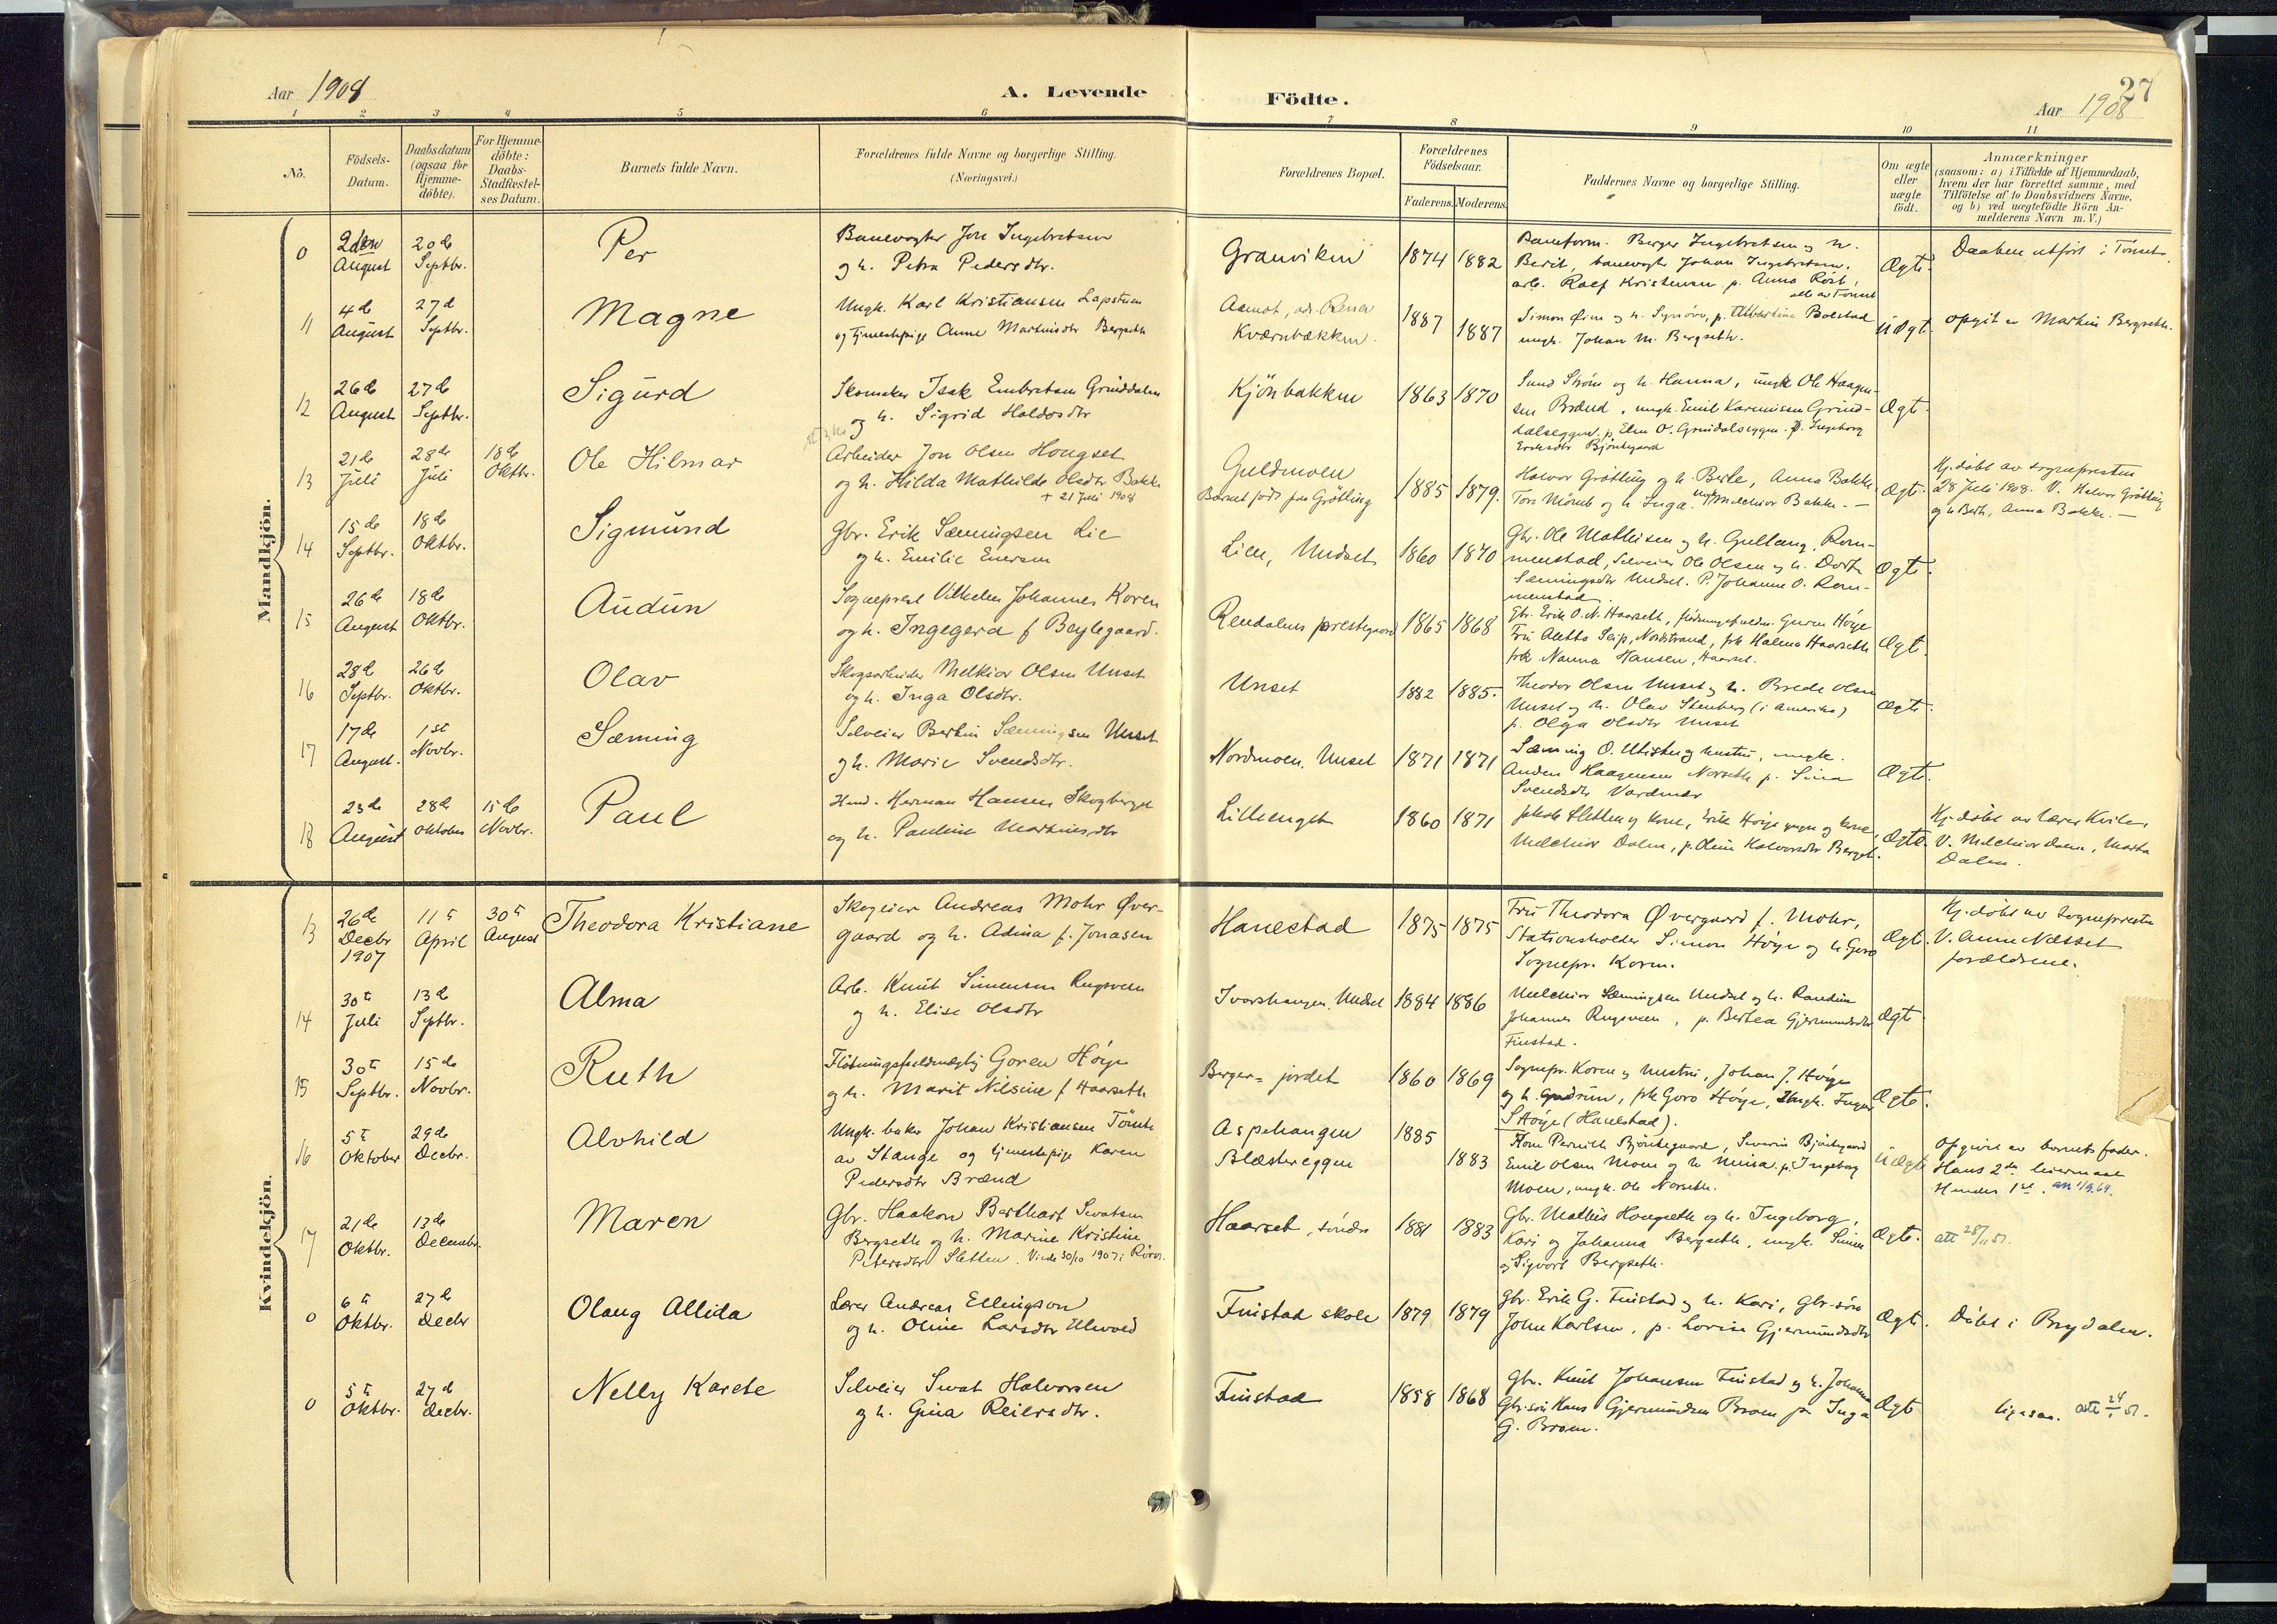 Aar 1908
A. Levende
Födte.
27
Aar 1908
1 2 3 4 5 6 7 8 9 10 11
No.
Födsels-
Datum.
Daabsdatum
(ogsaa for
Hjemme-
döbte).
For Hjemme-
döbte:
Daabs-
Stadfæstel-
ses Datum.
Barnets fulde Navn.
Forældrenes fulde Navne og borgerlige Stilling.
(Næringsvei.)
Forældrenes Bopæl.
Forældrenes
Födselsaar.
Faderens. Moderens.
Faddernes Navne og borgerlige Stilling.
Om ægte
eller
uægte
födt.
Anmærkninger
(saasom: a) i Tilfælde af Hjemmedaab,
hvem der har forrettet samme, med
Tilföielse af to Daabsvidners Navne,
og b) ved uægtefödte Börn An-
melderens Navn m. V.)
Mandkjön.
0
2den
August
20de
Septbr.
Per
Banevogter Jon Ingebretsen
og h. Petra Pedersdtr.
Granviken
1874 1882
Baneform. Berger Ingebretsen og h.
Berit, banevogt. Johan Ingebretsen,
arb. Rolf Kristensen p. Anna Röst,
alle av Tönset
Ægte.
Daaben utfört i Tönset.
11
4de
August
27d
Septbr.
Magne
Ungk. Karl Kristiansen Lapstuen
og tjenestepige Anne Martinsdtr Bergseth
Aamot, adr. Rena
Kværnbækken.
1887 1887
Simon Öien og h. Synöve, p. Albertine Bolstad
ungk. Johan M. Bergseth.
Uægt.
opgit av Martin Bergseth.
12
26de
August
27de
Septbr.
Sigurd
Skomaker Isak Embretsen Grinddalen
og h. Sigrid Haldosdtr
Kjönbakken
1863 1870
Sund Ström og h. Hanna, ungk Ole Haagen-
sen Brænd, ungk. Emil Karenissen Grind-
dalseggen, p. Elen O. Grindalseggen. p. Ingeborg
Eriksdtr Björkegaard
Ægt.
13
21de
Juli
28de
Juli
18de
Oktbr.
Ole Hilmar
Arbeider Jon Olsen Hongset
og h. Hilda Mathilde Olsdtr Bakke
+ 21 Juli 1908
Guldmoen
Barnet födt paa Grötting
1885 1879.
Halvor Grötting og h. Berte, Anna Bakke
Tore Mömb og h Inga. Ungk Melchior Bakke. —
Ægt.
Hj. döbt av sognepresten
28 Juli 1908. V. Halvor Grötting
og h Berth, Anna Bakke. —
14
15de
Septbr.
18de
Oktbr.
Sigmund
Gbr. Erik Sæmingsen Lie
og h. Emilie Enersen
Lien, Undset
1860 1870
Gbr. Ole Mathisen og h. Gullaug, Rom-
menstad, Selveier Ole Olsen og h. Dorte
Sæmingsdtr Undset. P. Johanne O. Rom-
menstad.
Ægte.
15
26de
August
18de
Oktbr.
Audun
Sogneprest Vilhelm Johannes Koren
og h. Ingegerd f Beylegaard.
Rendalens prestegaard
1865 1868
Gbr. Erik O. N. Haarseth, flödningsfuldm. Goren Höye
Fru Aletta Seip, Nordstrand, frk Halma Haarseth
frk. Nanna Hansen, Haarset.
Ægt.
16
28de
Septbr.
26de
Oktbr.
Olav
Skogsarbeider Melkior Olsen Unset
og h. Inga Olsdtr.
Unset
1882 1885.
Theodor Olsen Unset og h. Brede Olsen
Unset og h. Olav Stenberg (i Amerika)
p. Olga Olsdtr Unset
Ægte.
17
17de
August.
1st
Novbr.
Sæming
Selveier Bertin Sæmingsen Unset
og h. Marie Svendsdtr.
Nordmoen, Unset
1871 1871
Sæming O. Utistu og hustru, ungk.
Anders Haagensen Norseth p. Sina
Svendsdtr Vardmoe
Ægt.
18
23de
August
28de
Oktober
15de
Novbr.
Paul
Husd. Herman Hansen Skogberget
og h. Pauline Martinusdtr
Lillenget
1860 1871
Jakob Sletten og kone, Erik Höye yngre og kone,
Melchior Dalen, p. Oline Halvorsdtr Berget.
Ægte.
Hj. döbt av lærer Kvile
V. Melchior Dalen, Marta
Dalen.
Kvindekjön.
13
26de
Decbr
1907
11te
April
30te
August
Theodora Kristiane
Skogeier Andreas Mohr Över-
gaard og h. Adina f. Jonasen
Hanestad
1875 1875
Fru Theodora Övergaard f. Mohr,
Stationsholder Simon Höye og h. Goro
Sognepr. Koren.
Ægte.
Hj. döbt av sognepresten
V. Anne Næsset
forældrene.
14
30te
Juli
13de
Septbr.
Alma
Arb. Knut Simensen Rugsveen
og h. Elise Olsdtr
Ivarshaugen, Undset
1884 1886
Melchior Sæmingsen Undset og h. Randine
Johannes Rugsveen, p. Bertea Gjermundsdtr
Finstad.
Ægt.
15
30te
Septbr.
15de
Novbr.
Ruth
Flötningsfuldmægtig Goren Höye
og h. Marit Nilsine f Haarseth
Berger- jordet
1860 1869
Sognepr. Koren og hustru, Johan J. Höye
og h. Gudrun, frk Goro Höye, Ungk. Ingvar
S Höye (Hanestad).
Ægte.
16
5te
Oktober
29de
Decbr.
Alvhild
Ungk. baker Johan Kristiansen Tömte
av Stange og tjenestepige Karen
Pedersdtr Brænd
Aspehaugen
Blæstereggen
1885
1883
Kone Pernille Björkegaard, Severin Björkegaard
Emil Olsen Moen og h Mina. p. Ingeborg
Moen, ungk. Ole Norseth.
Uægte
Opgivet av barnets fader.
Hans 2det leiermaal
Hendes 1st. att 1/9.64.
17
21de
Oktbr.
13de
Decembr.
Maren
Gbr. Haakon Berthart Sivatsen
Bergseth og h. Marine Kristine
Petersdtr Sletten. Viede 30/10 1907 i Röros.
Haarset, söndre
1881 1883
Gbr. Mathis Hongseth og h. Ingeborg,
Kari og Johanna Bergseth, ungk. Simen
og Sigvart Bergseth.
Ægte.
att 28/11 51.
0
6te
Oktbr.
27de
Decbr
Olaug Allida
Lærer Andreas Ellingson
og h. Oline Larsdtr Ellevold
Finstad skole
1879 1879
Gbr. Erik G. Finstad og h. Kari, Gbr.sön
John Karlsen, p. Lovise Gjermundsdtr
Ægte.
Döbt i Brydalen.
0
5te
Oktbr.
27d
Decbr.
Nelly Karete
Selveier Sivat Halvorsen
og h. Gina Reiersdtr.
Finstad
1858 1868
Gbr. Knut Johansen Finstad og h. Johanna
Gbr.sön Hans Gjermundsen Broen p Inga
G. Broen.
Ægt
ligesaa.